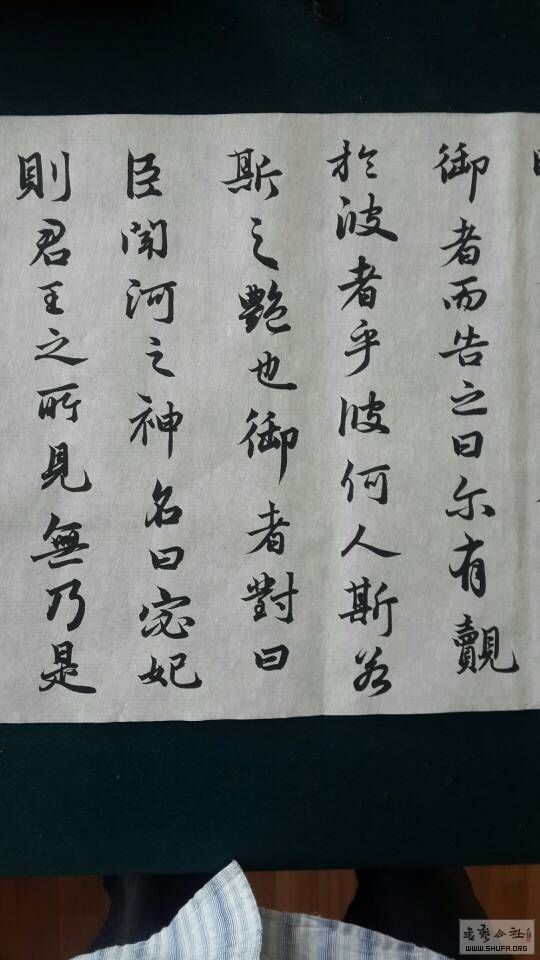 御者而告之曰尔有覿
於彼者乎彼何人斯若
斯之艷也御者對曰
臣聞河之神名曰宓妃
則君王之所見無乃是
书艺公社
WWW.SHUFA.ORG